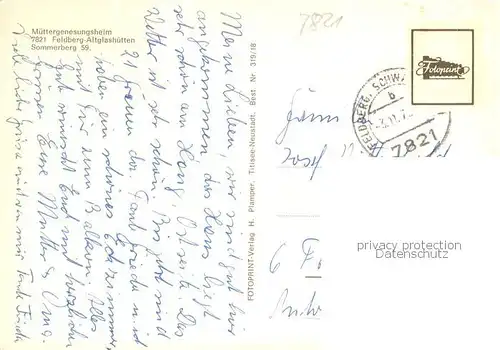 Müttergenesungsheim
7821 Feldberg-Altglashütten
Sommerberg 59.
7821
Meine Lieben, wir sind gut hier
angekommen, das Haus liegt
sehr schön am Hang, Ostseite. Das
Wetter ist sehr schön. Bis jetzt sind
21 Frauen da. Tante Frieda u. ich
haben ein schönes Eckzimmer,
mit Tür zum Balkon. Alles
Gute wünscht Euch und herzliche
Grüssen Eure Mutter & Oma.
Viele liebe Grüsse auch von mir Tante Frieda
FOTOPRINT-Verlag H. Pfamper. Titisee-Neustadt. Best. Nr 319/18
Fotoprint
FELDBERG (SCHW
b
7821
6 F
privacy protection
Datenschutz